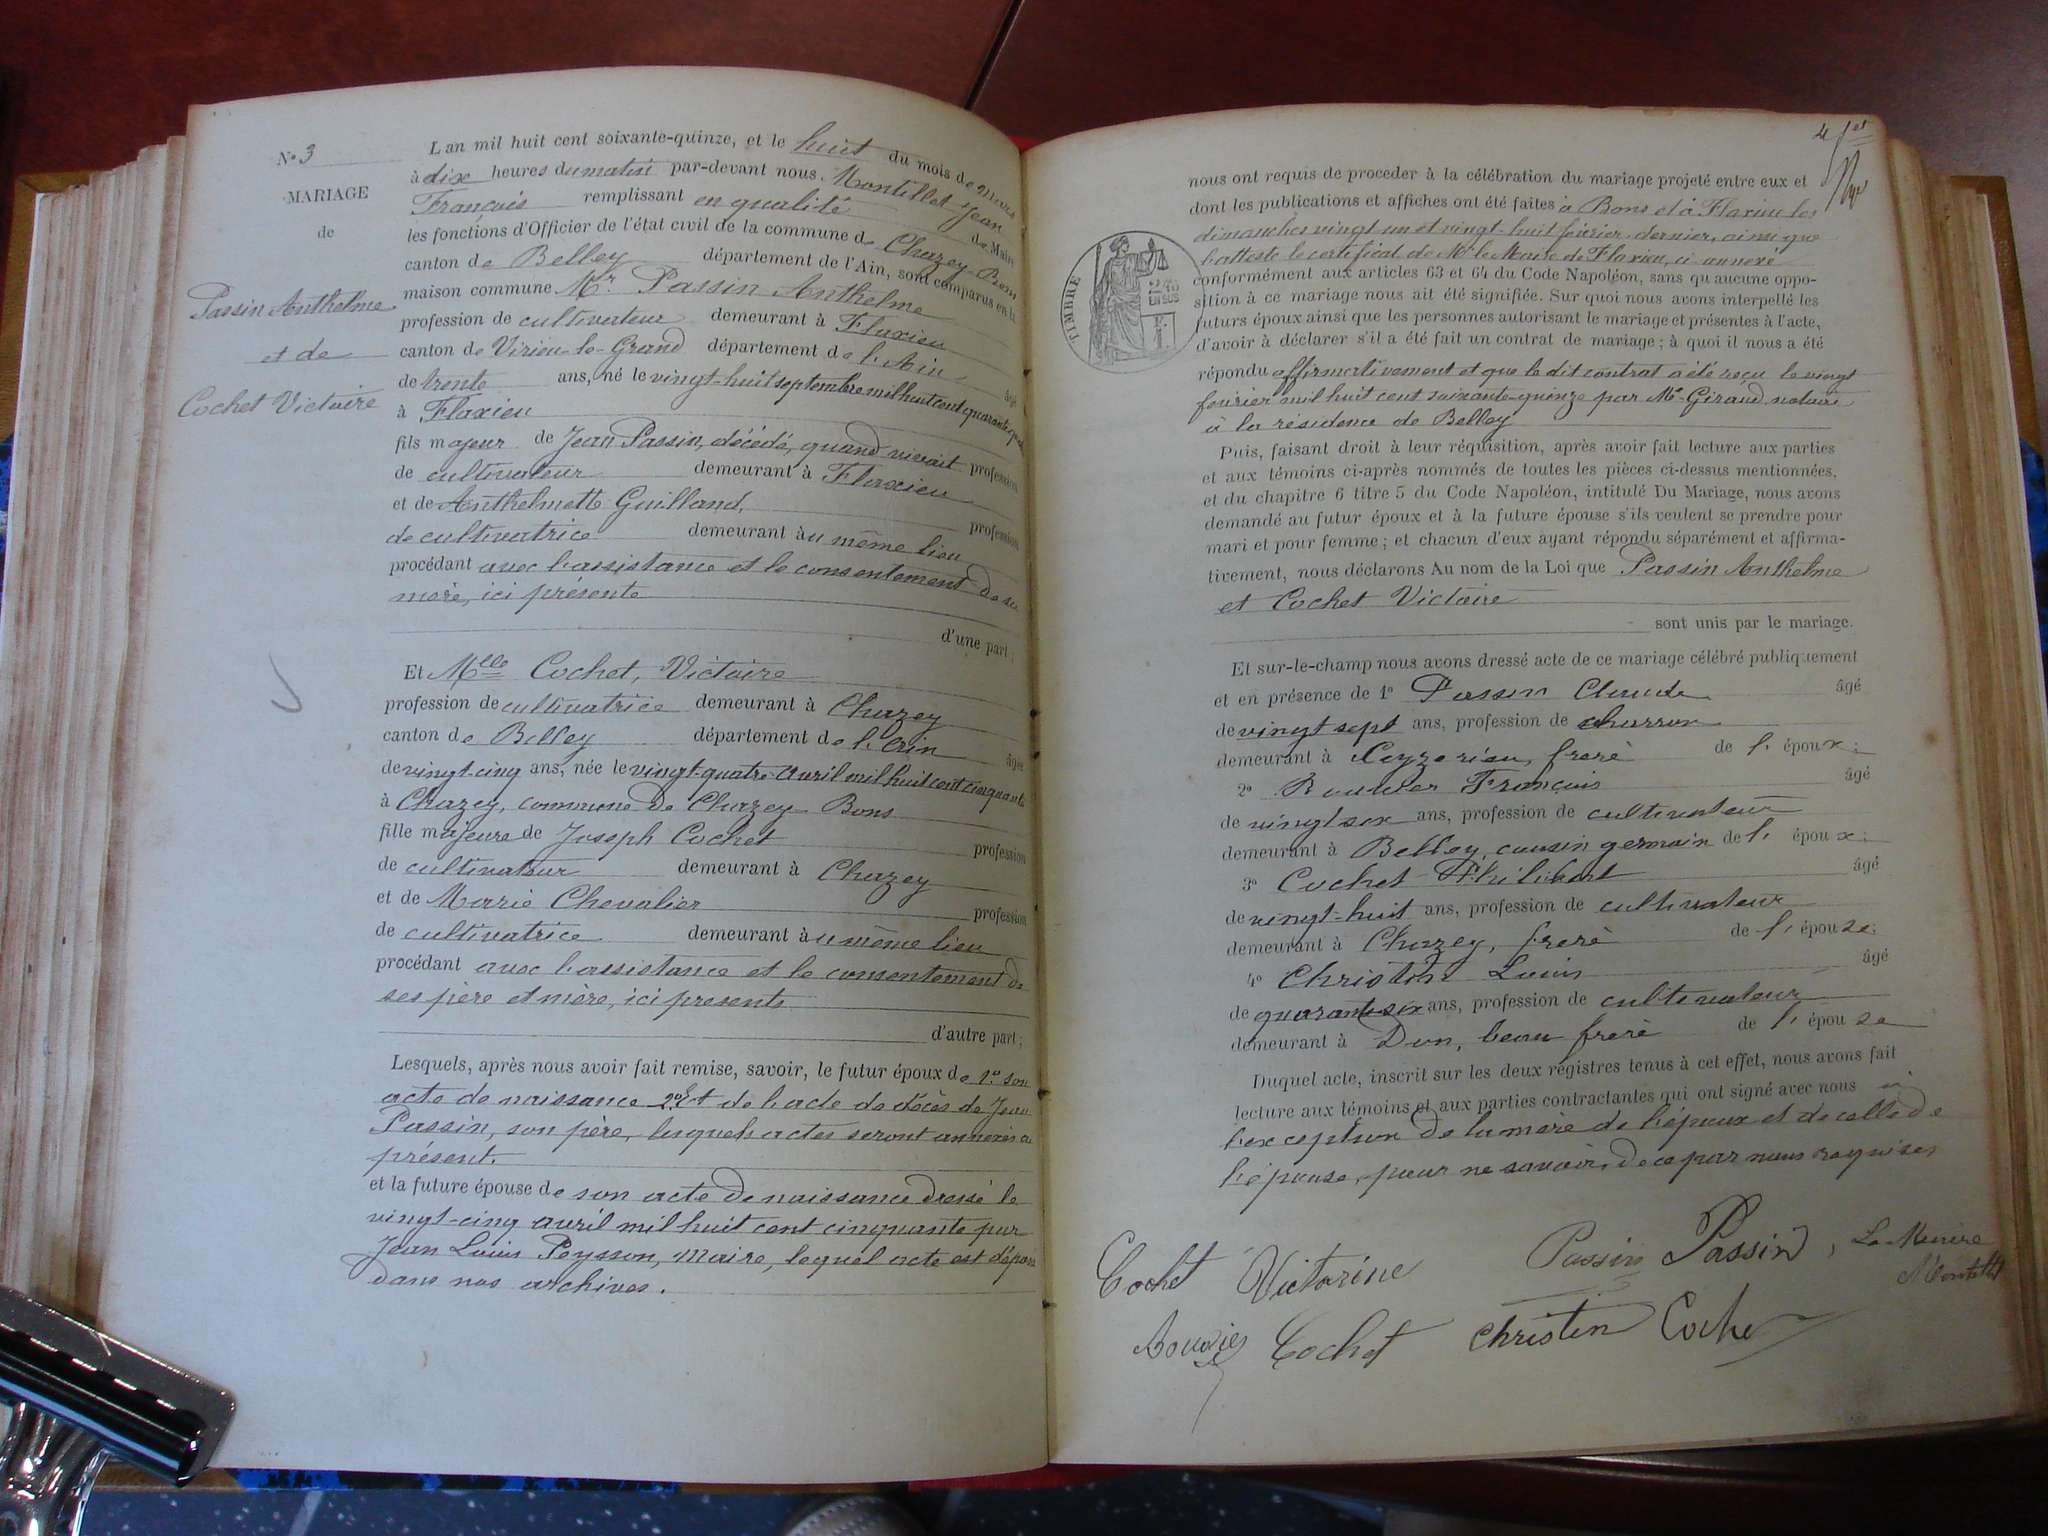 N° 3
MARIAGE
de
Passin Anthelme
et de
Cochet Victoire
L'an mil huit cent soixante-quinze, et le huit du mois de Mars
à dix heures du matin par-devant nous Montillet Jean
François remplissant en qualité de Maire
les fonctions d'Officier de l'état civil de la commune de Chazey-Bons
canton de Belley département de l'Ain, sont comparus en la
maison commune Mr. Passin Anthelme
profession de cultivateur demeurant à Flaxieu
canton de Virieu-le-Grand département de l'Ain âgé
de trente ans, né le vingt-huit septembre mil huit cent quarante quatre
à Flaxieu
fils majeur de Jean Passin, décédé, quand vivait profession
de cultivateur demeurant à Flaxieu
et de Anthelmette Guilland, profession
de cultivatrice demeurant au même lieu
procédant avec l'assistance et le consentement de sa
mère, ici présente
d'une part;
Et Mlle Cochet, Victoire
profession de cultivatrice demeurant à Chazey
canton de Belley département de l'Ain âgée
de vingt-cinq ans, née le vingt-quatre avril mil huit cent cinquante
à Chazey, commune de Chazey-Bons
fille majeure de Joseph Cochet profession
de cultivateur demeurant à Chazey
et de Marie Chevalier profession
de cultivatrice demeurant au même lieu
procédant avec l'assistance et le consentement de
ses père et mère, ici présents
d'autre part;
Lesquels, après nous avoir fait remise, savoir, le futur époux de 1° son
acte de naissance 2° Et de l'acte de décès de Jean
Passin, son père, lesquels actes seront annexés au
présent.
et la future épouse de son acte de naissance dressé le
vingt-cinq avril mil huit cent cinquante par
Jean Louis Peysson, Maire, lequel acte est déposé
dans nos archives.
4
nous ont requis de proceder à la célébration du mariage projeté entre eux et
dont les publications et affiches ont été faites à Bons et à Flaxieu les
dimanches vingt-un et vingt-huit février dernier, ainsi que
l'atteste le certificat de Mr le Maire de Flaxieu, ci annexé
TIMBRE
conformément aux articles 63 et 64 du Code Napoléon, sans qu'aucune oppo-
sition à ce mariage nous ait été signifiée. Sur quoi nous avons interpellé les
futurs époux ainsi que les personnes autorisant le mariage et présentes à l'acte,
d'avoir à déclarer s'il a été fait un contrat de mariage; à quoi il nous a été
répondu affirmativement et que le dit contrat a été reçu le vingt
février mil huit cent soixante-quinze par Me Giraud, notaire
à la résidence de Belley
Puis, faisant droit à leur réquisition, après avoir fait lecture aux parties
et aux témoins ci-après nommés de toutes les pièces ci-dessus mentionnées,
et du chapitre 6 titre 5 du Code Napoléon, intitulé Du Mariage, nous avons
demandé au futur époux et à la future épouse s'ils veulent se prendre pour
mari et pour femme; et chacun d'eux ayant répondu séparément et affirma-
tivement, nous déclarons Au nom de la Loi que Passin Anthelme
et Cochet Victoire
sont unis par le mariage.
Et sur-le-champ nous avons dressé acte de ce mariage célébré publiquement
et en présence de 1° Passin Claude âgé
de vingt sept ans, profession de charron
demeurant à Ceyzerieu, frère de l'époux;
2° Rouvier François âgé
de vingt six ans, profession de cultivateur
demeurant à Belley, cousin germain de l'époux;
3° Cochet Philibert âgé
de vingt-huit ans, profession de cultivateur
demeurant à Chazey, frère de l'épouse;
4° Christin Louis âgé
de quarante-six ans, profession de cultivateur
demeurant à Don, beau frère de l'épouse
Duquel acte, inscrit sur les deux registres tenus à cet effet, nous avons fait
lecture aux témoins et aux parties contractantes qui ont signé avec nous à
l'exception de la mère de l'époux et de celle de
l'épouse, pour ne savoir, de ce par nous requises
Cochet Victorine Passin Passin Le Maire
Montillet
Bouvier Cochet Christin Cochet